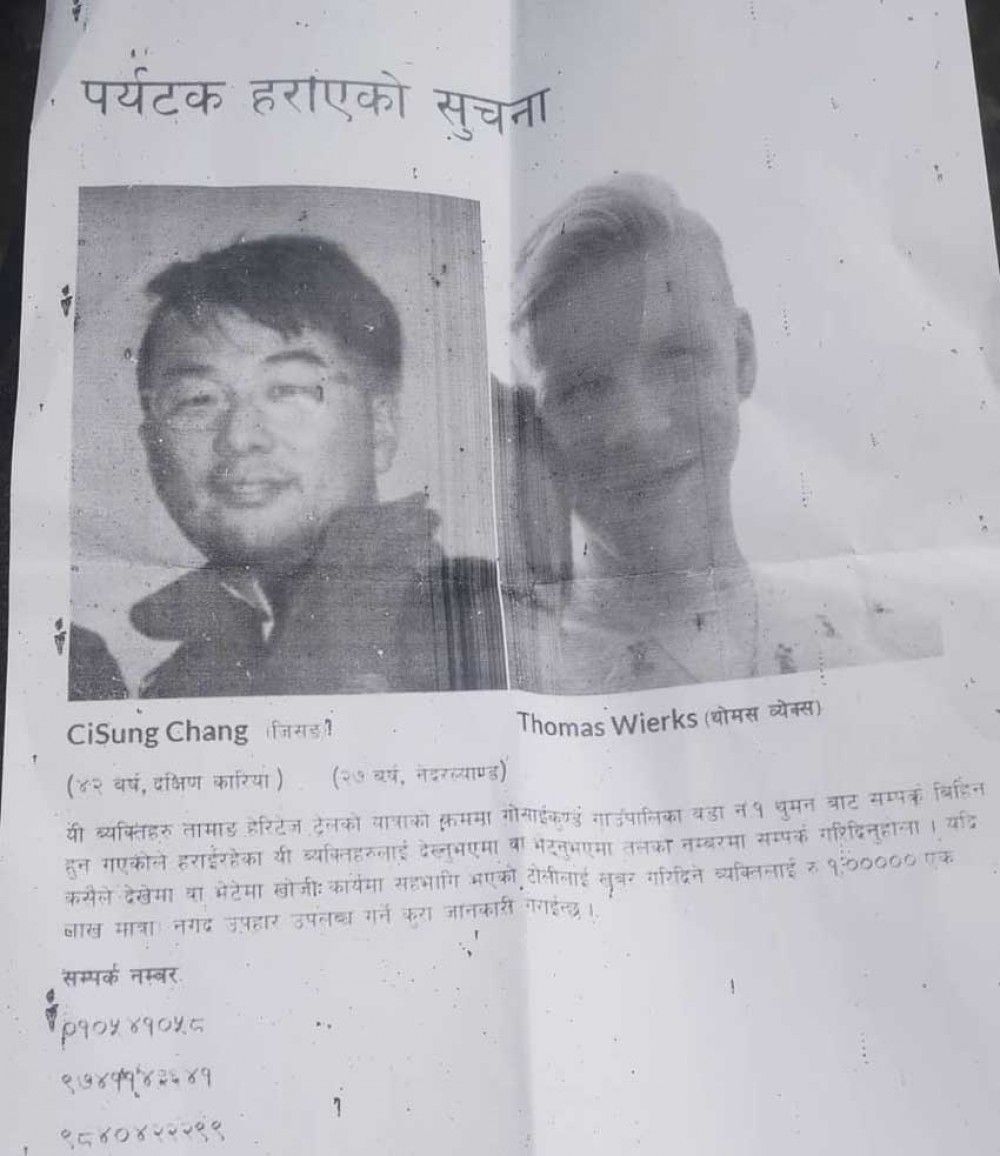 पर्यटक हराएको सुचना
CiSung Chang (जिसङ)
Thomas Wierks (थोमस व्येक्स)
(४२ वर्ष, दक्षिण कोरिया) (२७ वर्ष, नेदरल्याण्ड)
यी ब्यक्तिहरु तामाङ हेरिटेज ट्रेलको यात्राको क्रममा गोसाईकुण्ड गाउँपालिका वडा न १ थुमन बाट सम्पर्क बिहिन
हुन गएकोले हराईरहेका यी ब्यक्तिहरुलाई देख्नुभएमा वा भेट्नुभएमा तलका नम्बरमा सम्पर्क गरिदिनुहोला । यदि
कसैले देखेमा वा भेटेमा खोजी कार्यमा सहभागि भएको टोलीलाई खबर गरिदिने ब्यक्तिलाई रु १००००० एक
लाख मात्रा नगद उपहार उपलब्ध गर्ने कुरा जानकारी गराईन्छ ।
सम्पर्क नम्बर
०१०५४१०५८
९८४०४२२२९९